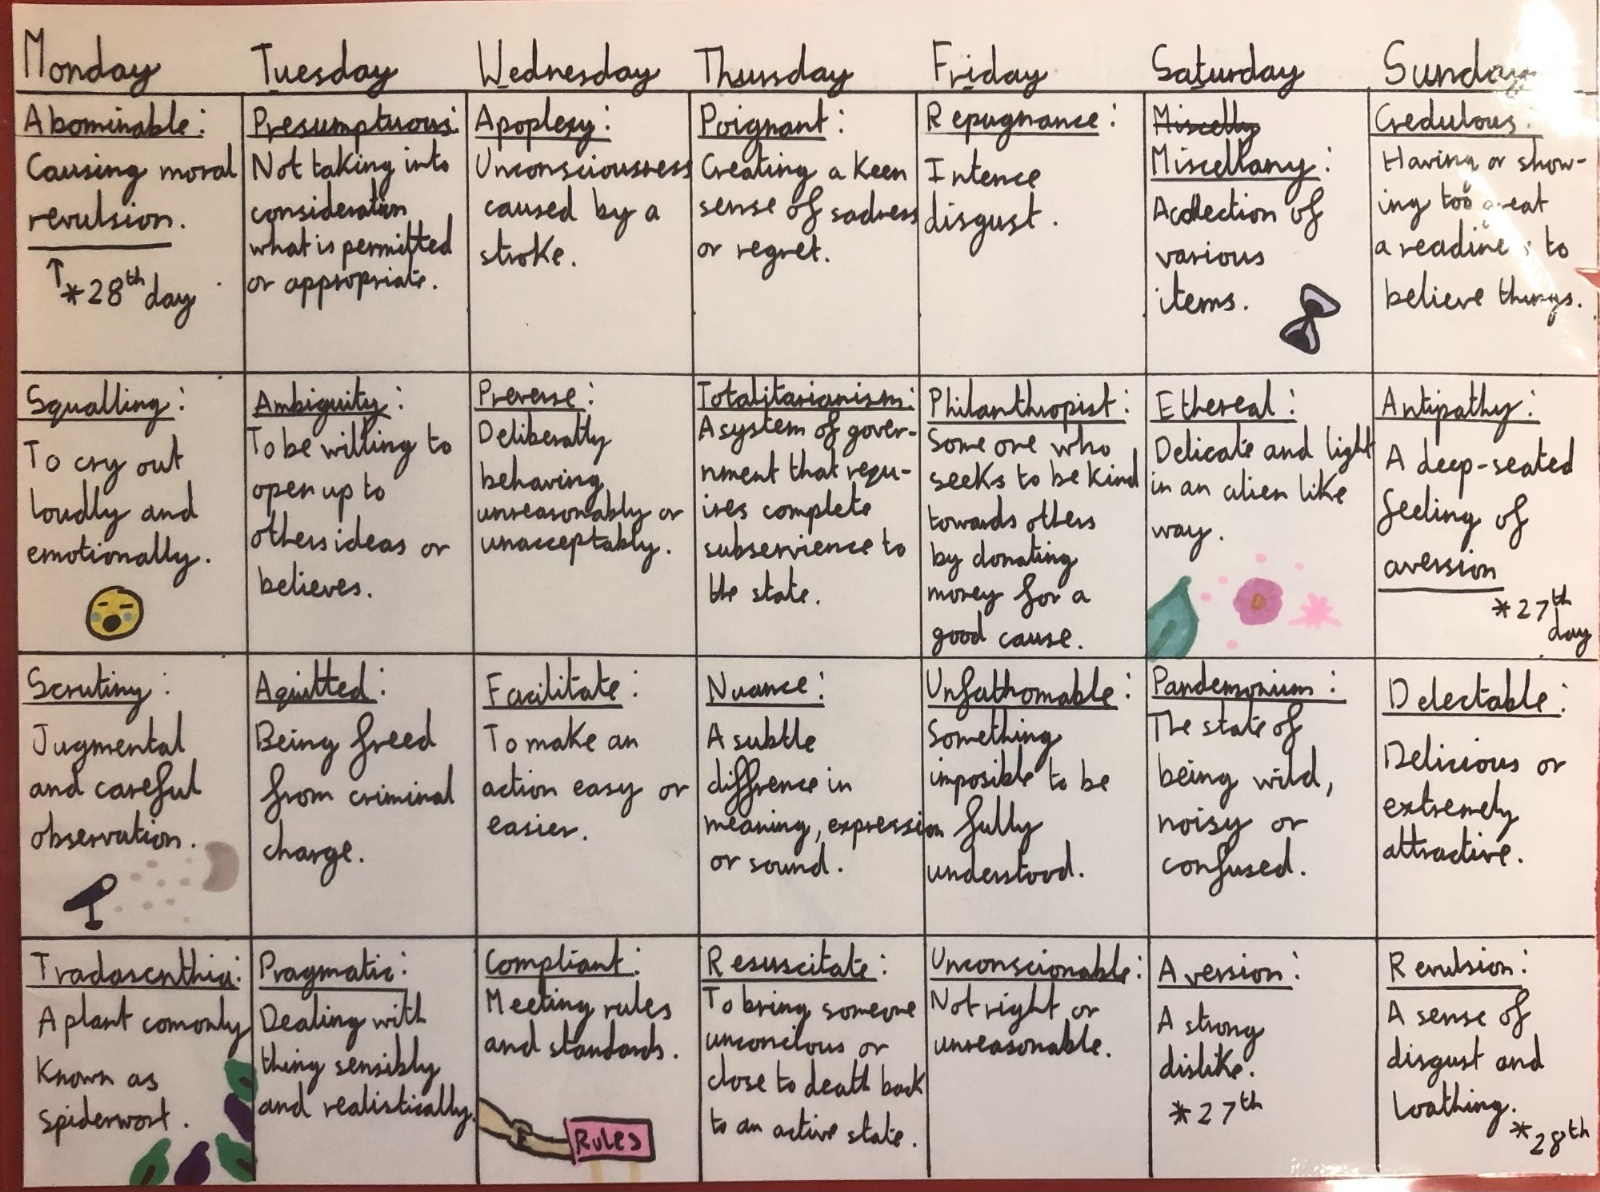 Monday
Tuesday
Wednesday
Thursday
Friday
Saturday
Sunday
Abominable:
Causing moral
revulsion.
*28th day
Presumptuous:
Not taking into
consideration
what is permitted
or appropriate.
Apoplexy:
Unconsciousness
caused by a
stroke.
Poignant:
Creating a keen
sense of sadness
or regret.
Repugnance:
Intence
disgust.
Miscelly
Miscellany:
A collection of
various
items.
Credulous:
Having or show-
ing too great
a readiness to
believe things.
Squalling:
To cry out
loudly and
emotionally.
Ambiguity:
To be willing to
open up to
others ideas or
believes.
Preverse:
Deliberatly
behaving
unreasonably or
unacceptably.
Totalitarianism:
A system of gover-
nment that requ-
ires complete
subservience to
the state.
Philanthropist:
Some one who
seeks to be kind
towards others
by donating
money for a
good cause.
Ethereal:
Delicate and light
in an alien like
way.
Antipathy:
A deep-seated
feeling of
aversion
*27th
day
Scrutiny:
Jugmental
and careful
observation.
Aquitted:
Being freed
from criminal
charge.
Facilitate:
To make an
action easy or
easier.
Nuance:
A subtle
diffrence in
meaning, expression
or sound.
Unfathomable:
Something
imposible to be
fully
understood.
Pandemonium:
The state of
being wild,
noisy or
confused.
Delectable:
Delicious or
extremely
attractive.
Tradascnthia:
A plant comonly
known as
spiderwort.
Pragmatic:
Dealing with
thing sensibly
and realistically.
Compliant:
Meeting rules
and standards.
RULES
Resuscitate:
To bring someone
unconcious or
close to death back
to an active state.
Unconscionable:
Not right or
unreasonable.
Aversion:
A strong
dislike.
*27th
Revulsion:
A sense of
disgust and
loathing.
*28th